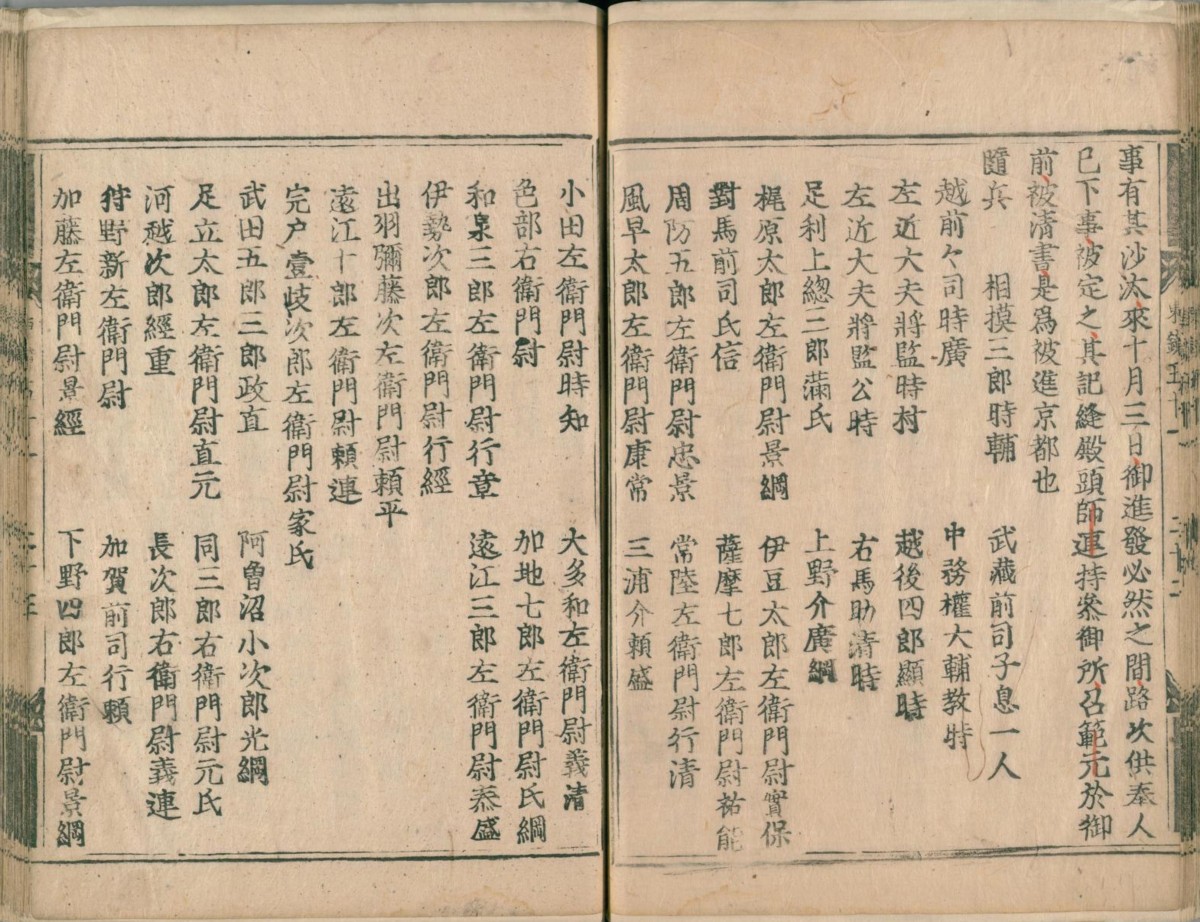 事有其沙汰來十月三日御進發必然之間路次供奉人
已下事被定之其記縫殿頭師連持參御所召範元於御
前被清書是爲被進京都也
隨兵　相摸三郎時輔　武藏前司子息一人
越前々司時廣　中務權大輔教時
左近大夫將監時村　越後四郎顯時
左近大夫將監公時　右馬助清時
足利上總三郎滿氏　上野介廣綱
梶原太郎左衛門尉景綱　伊豆太郎左衛門尉實保
對馬前司氏信　薩摩七郎左衛門尉祐能
周防五郎左衛門尉忠景　常陸左衛門尉行清
風早太郎左衛門尉康常　三浦介頼盛
小田左衛門尉時知　大多和左衛門尉義清
色部右衛門尉　加地七郎左衛門尉氏綱
和泉三郎左衛門尉行章　遠江三郎左衛門尉泰盛
伊勢次郎左衛門尉行經
出羽彌藤次左衛門尉頼平
遠江十郎左衛門尉頼連
宍戸壹岐次郎左衛門尉家氏
武田五郎三郎政直　阿曽沼小次郎光綱
足立太郎左衛門尉直元　同三郎右衛門尉元氏
河越次郎經重　長次郎右衛門尉義連
狩野新左衛門尉　加賀前司行頼
加藤左衛門尉景經　下野四郎左衛門尉景綱